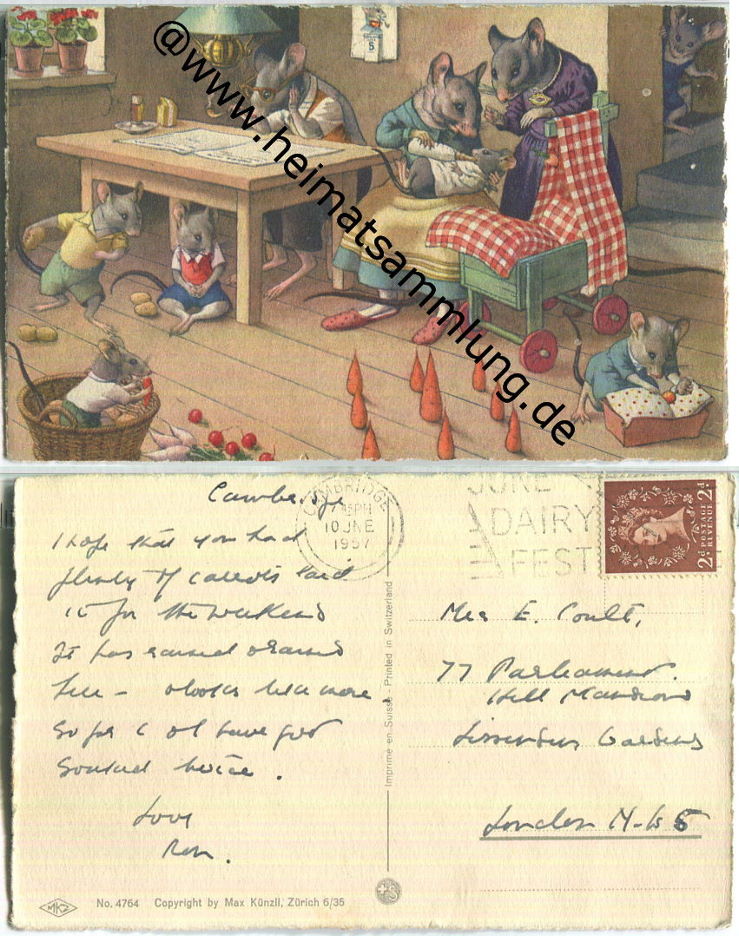 @www.heimatsammlung.de
5
Cambridge
I hope that you had
plenty of carrots laid
in for the weekend
It has rained
here - looks like more
So far I have got
soaked twice.
Love
Ron.
CAMBRIDGE
PM
10 JNE
1957
JUNE
DAIRY
FEST
2d POSTAGE REVENUE 2d
Imprimé en Suisse - Printed in Switzerland
E. Coult,
77 Parliament
Hill Mansions
Lissenden Gardens
London N.W. 5
MKZ No. 4764 Copyright by Max Künzli, Zürich 6/35